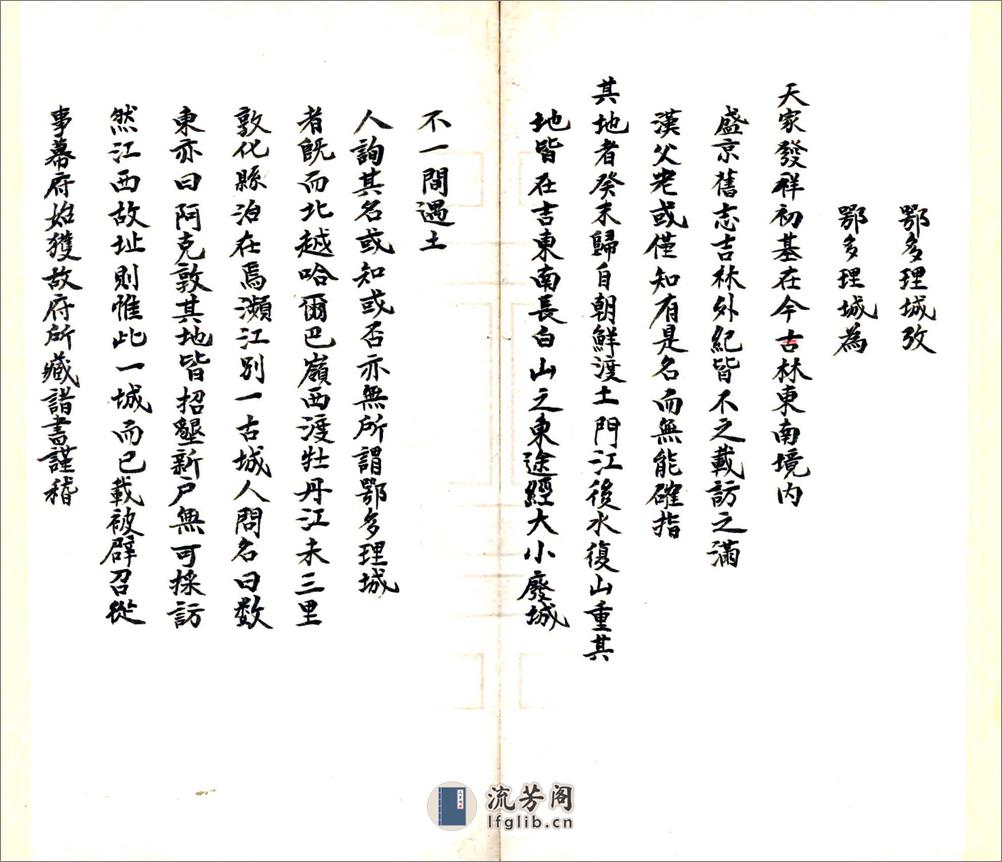 鄂多理城攷
鄂多理城為
天家發祥初基在今吉林東南境內
盛京舊志吉林外紀皆不之載訪之滿
漢父老或僅知有是名而無能確指
其地者癸未歸自朝鮮渡土門江後水復山重其
地皆在吉東南長白山之東途經大小廢城
不一間遇土
人詢其名或知或否亦無所謂鄂多理城
者既而北越哈爾巴嶺西渡牡丹江未三里
敦化縣治在焉瀕江別一古城人問名曰敖
東亦曰阿克敦其地皆招墾新戶無可採訪
然江西故址則惟此一城而已載被辟召從
事幕府始獲故府所藏諸書謹稽
流芳阁
lfglib.cn